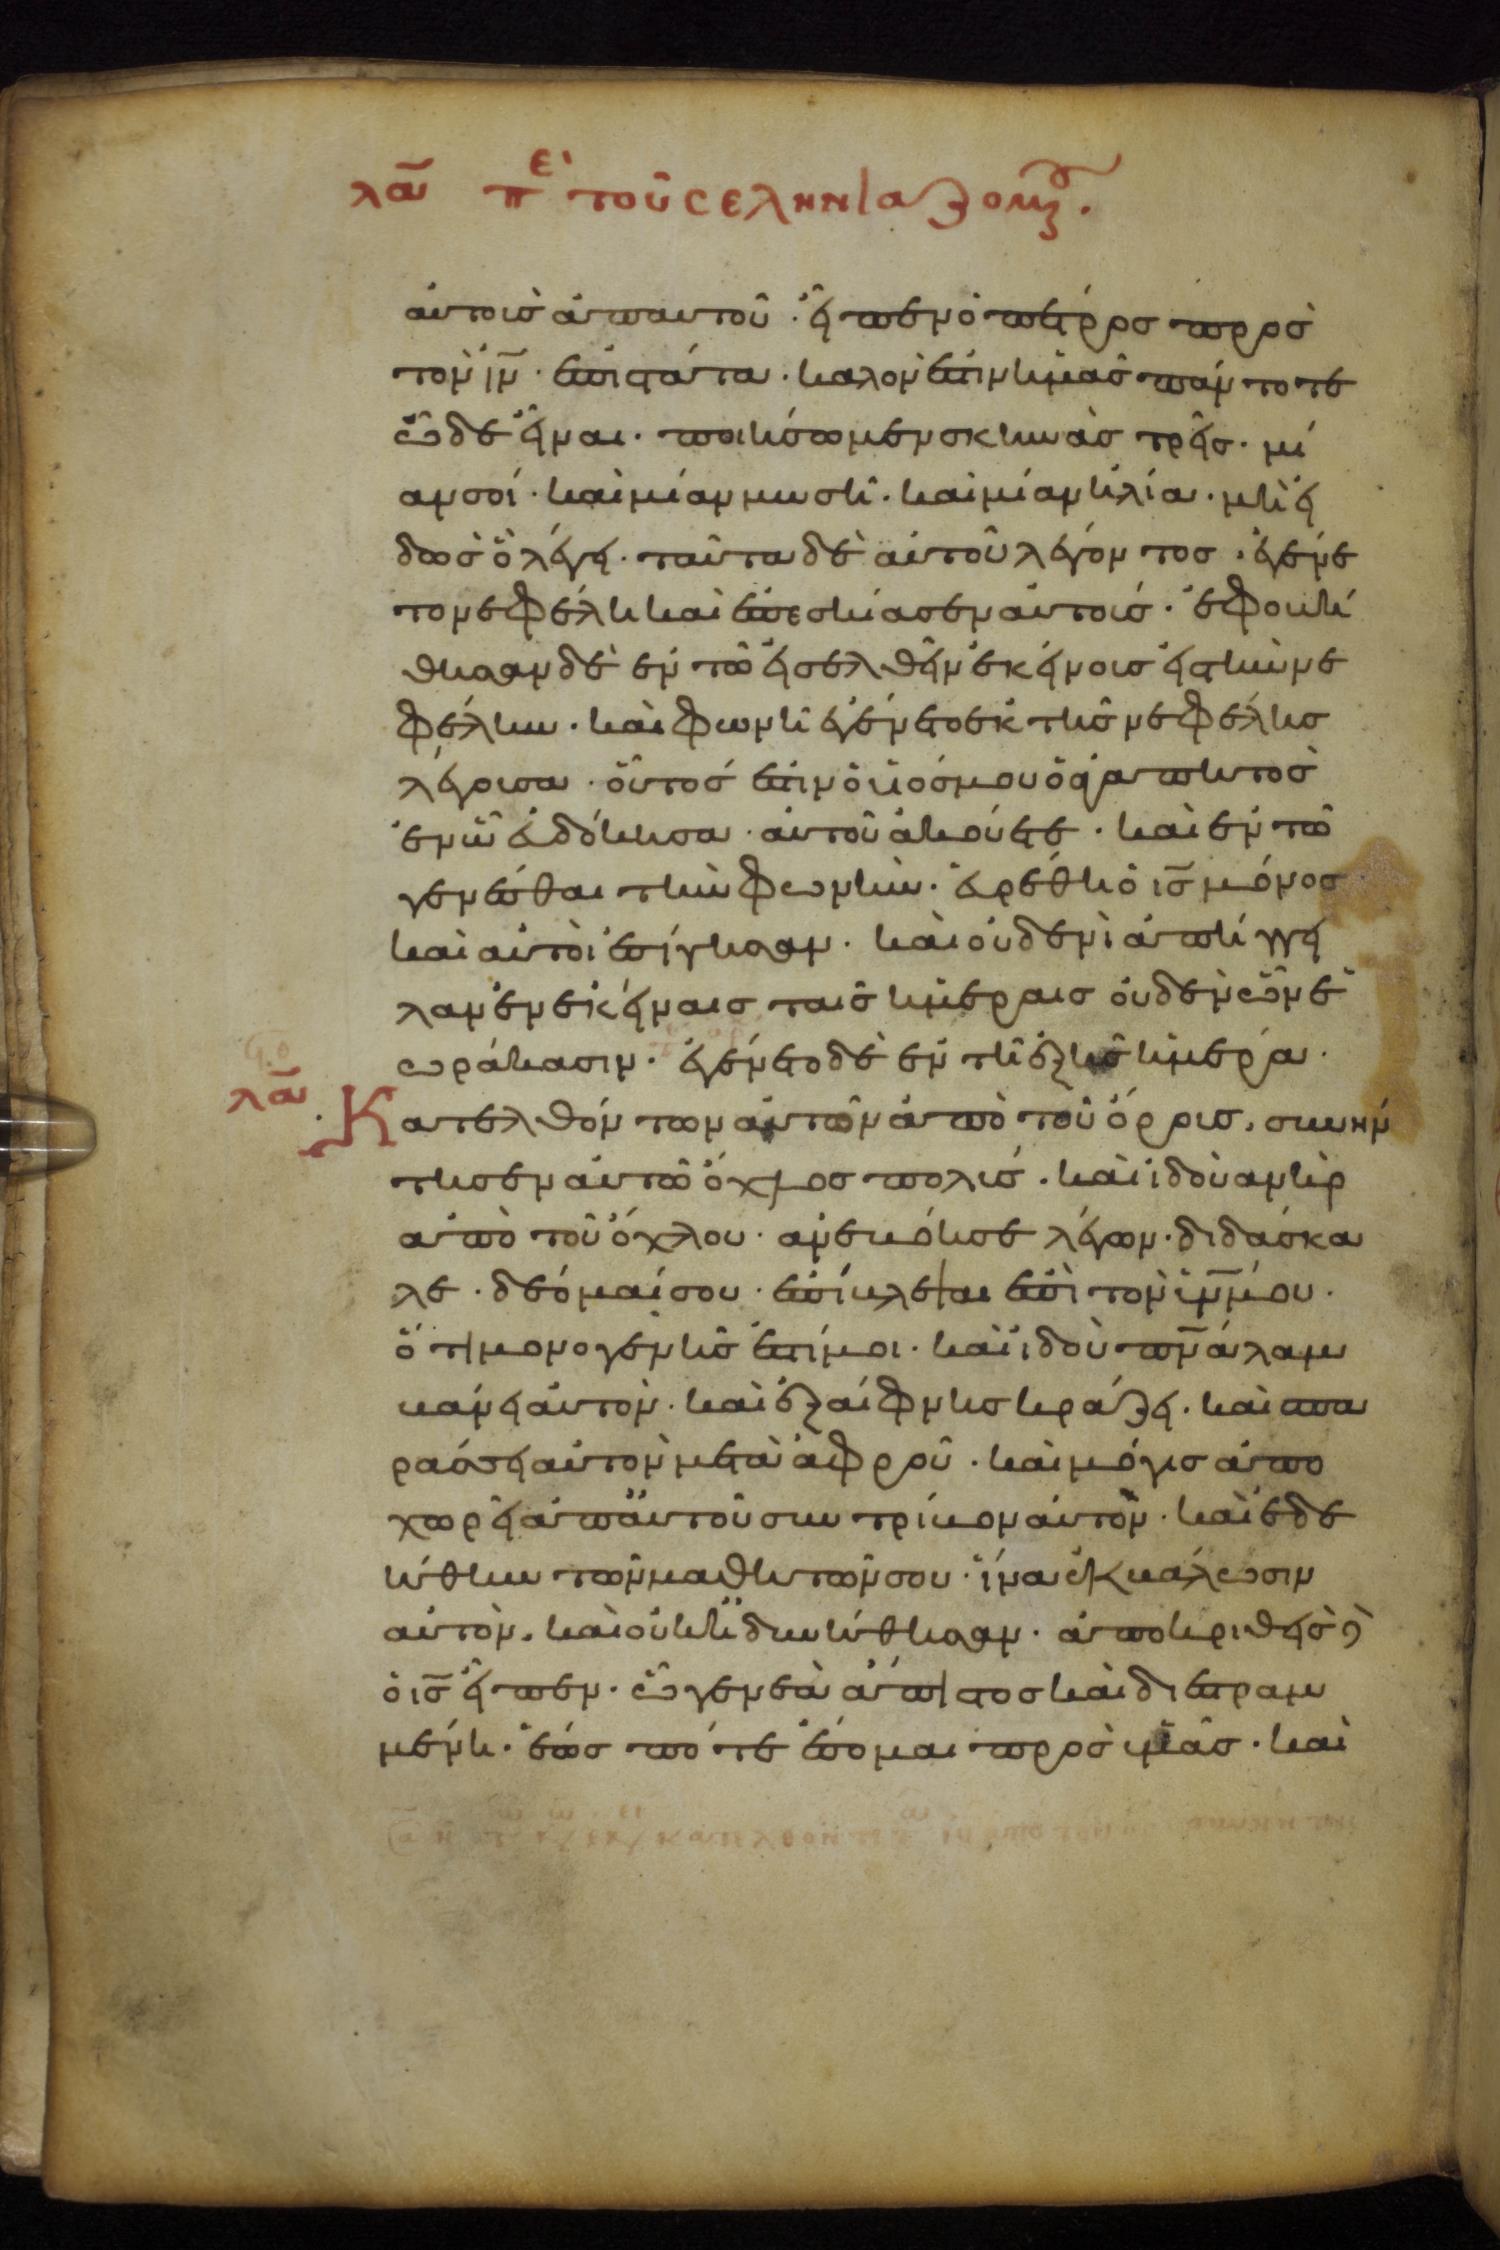 λα̅ πὲ τοῦ σεληνιαζομ
αὐτοὶς ἀπ αυτοῦ · εἶπεν ὁ πέτρος πρὸς
τὸν ἰ̅ν̅ · ἐπιστάτα · καλόν ἐστιν ἡμᾶς πάντοτε
ὧδε εἶναι · ποιήσωμεν σκηνὰς τρεῖς · μί
αν σοί · καὶ μίαν μωσῆ · καὶ μίαν ἡλία · μὴ εἰ
δὼς ὃ λέγει · ταῦτα δὲ αὐτοῦ λέγοντος · ἐγένε
το νεφέλη καὶ ἐπεσκίασεν αὐτοίς · ἐφοβή
θησαν δὲ ἐν τῶ εἰσελθεῖν ἐκείνοις εἰς τὴν νε
φέλην · καὶ φωνὴ ἐγένετο ἐκ τῆς νεφέλης
λέγουσα · οὗτός ἐστιν ὁ υἱός μου ὁ ἀγαπητὸς
ἐν ὧ εὐδόκησα · αὐτοῦ ἀκούετε · καὶ ἐν τῶ
γενέσθαι τὴν φωνὴν · εὑρέθη ὁ ι̅ς̅ μόνος
καὶ αὐτοὶ ἐσίγησαν · καὶ οὐδενὶ ἀπήγγει
λαν ἐν ἐκείναις ταῖς ἡμέραις οὐδὲν ὧν ἑ
ωράκασιν · ἐγένετο δὲ ἐν τῆ ἑξῆς ἡμέρα ·
λα̅ Κατελθόντων αὐτῶν ἀπὸ τοῦ όρους, συνήν
τησεν αὐτῶ ὄχλος πολύς · καὶ ἰδοὺ ανὴρ
ἀπὸ τοῦ ὄχλου · ἀνεβόησε λέγων · διδάσκα
λε · δέομαί σου · ἐπίβλεψαι ἐπὶ τὸν υ̅ν̅ μου ·
ὅτι μονογενής ἐστί μοι · καὶ ἰδοὺ π̅ν̅α̅ λαμ
βάνει αὐτὸν · καὶ ἐξαίφνης κράζει · καὶ σπα
ράσσει αὐτὸν μετὰ ἀφροῦ · καὶ μόγις ἀπο
χωρεῖ ἀπ αὐτοῦ συντρίβον αὐτὸν · καὶ ἐδε
ήθην τῶν μαθητῶν σου · ἵνα ἐκβάλωσιν
αὐτὸν, καὶ οὐκ ἠδυνήθησαν · ἀποκριθεὶς δὲ
ὁ ι̅ς̅ εἶπεν · ὦ γενεὰ ἄπιστος καὶ διεστραμ
μένη · ἕως πότε ἔσομαι πρὸς ὑμᾶς · καὶ